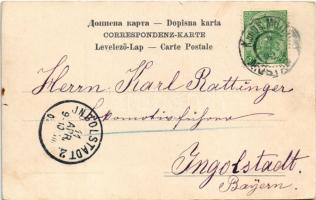 Дописна карта — Dopisna karta
CORRESPONDENZ-KARTE
Levelező-Lap — Carte Postale
Herrn Karl Rattinger
Lokomotivführer
Ingolstadt.
Bayern.
INGOLSTADT 2.
11
APR